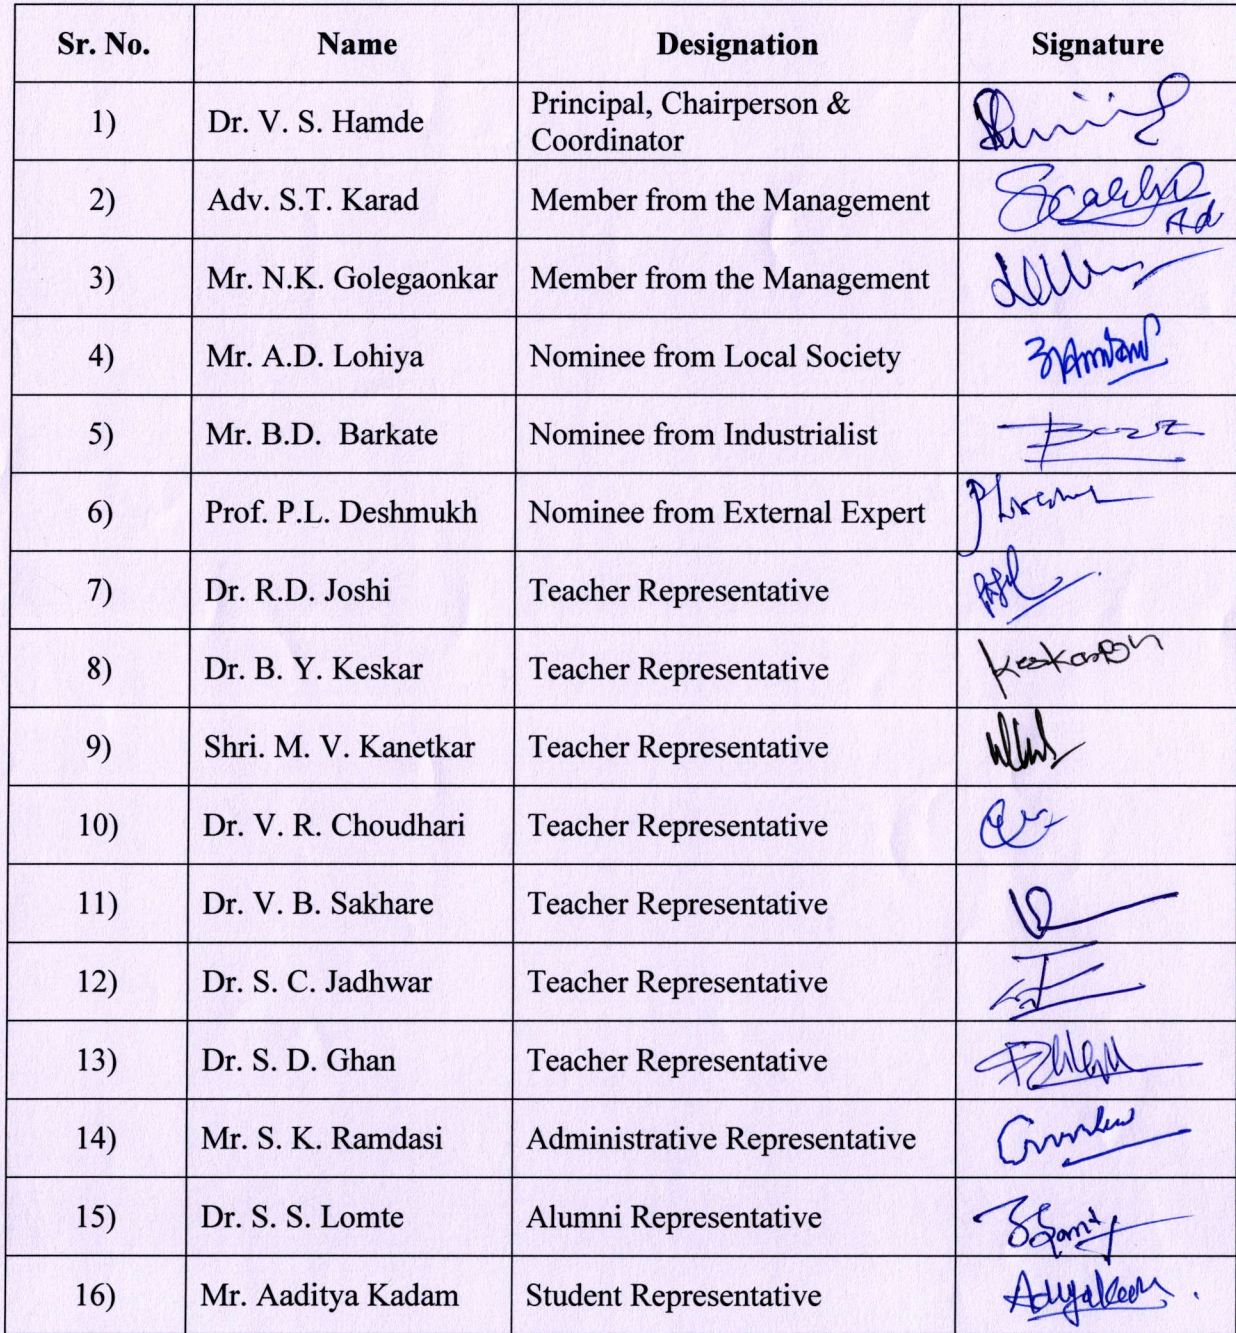 Sr. No. Name Designation Signature
1) Dr. V. S. Hamde Principal, Chairperson &
Coordinator
2) Adv. S.T. Karad Member from the Management
3) Mr. N.K. Golegaonkar Member from the Management
4) Mr. A.D. Lohiya Nominee from Local Society
5) Mr. B.D. Barkate Nominee from Industrialist
6) Prof. P.L. Deshmukh Nominee from External Expert
7) Dr. R.D. Joshi Teacher Representative
8) Dr. B. Y. Keskar Teacher Representative
9) Shri. M. V. Kanetkar Teacher Representative
10) Dr. V. R. Choudhari Teacher Representative
11) Dr. V. B. Sakhare Teacher Representative
12) Dr. S. C. Jadhwar Teacher Representative
13) Dr. S. D. Ghan Teacher Representative
14) Mr. S. K. Ramdasi Administrative Representative
15) Dr. S. S. Lomte Alumni Representative
16) Mr. Aaditya Kadam Student Representative